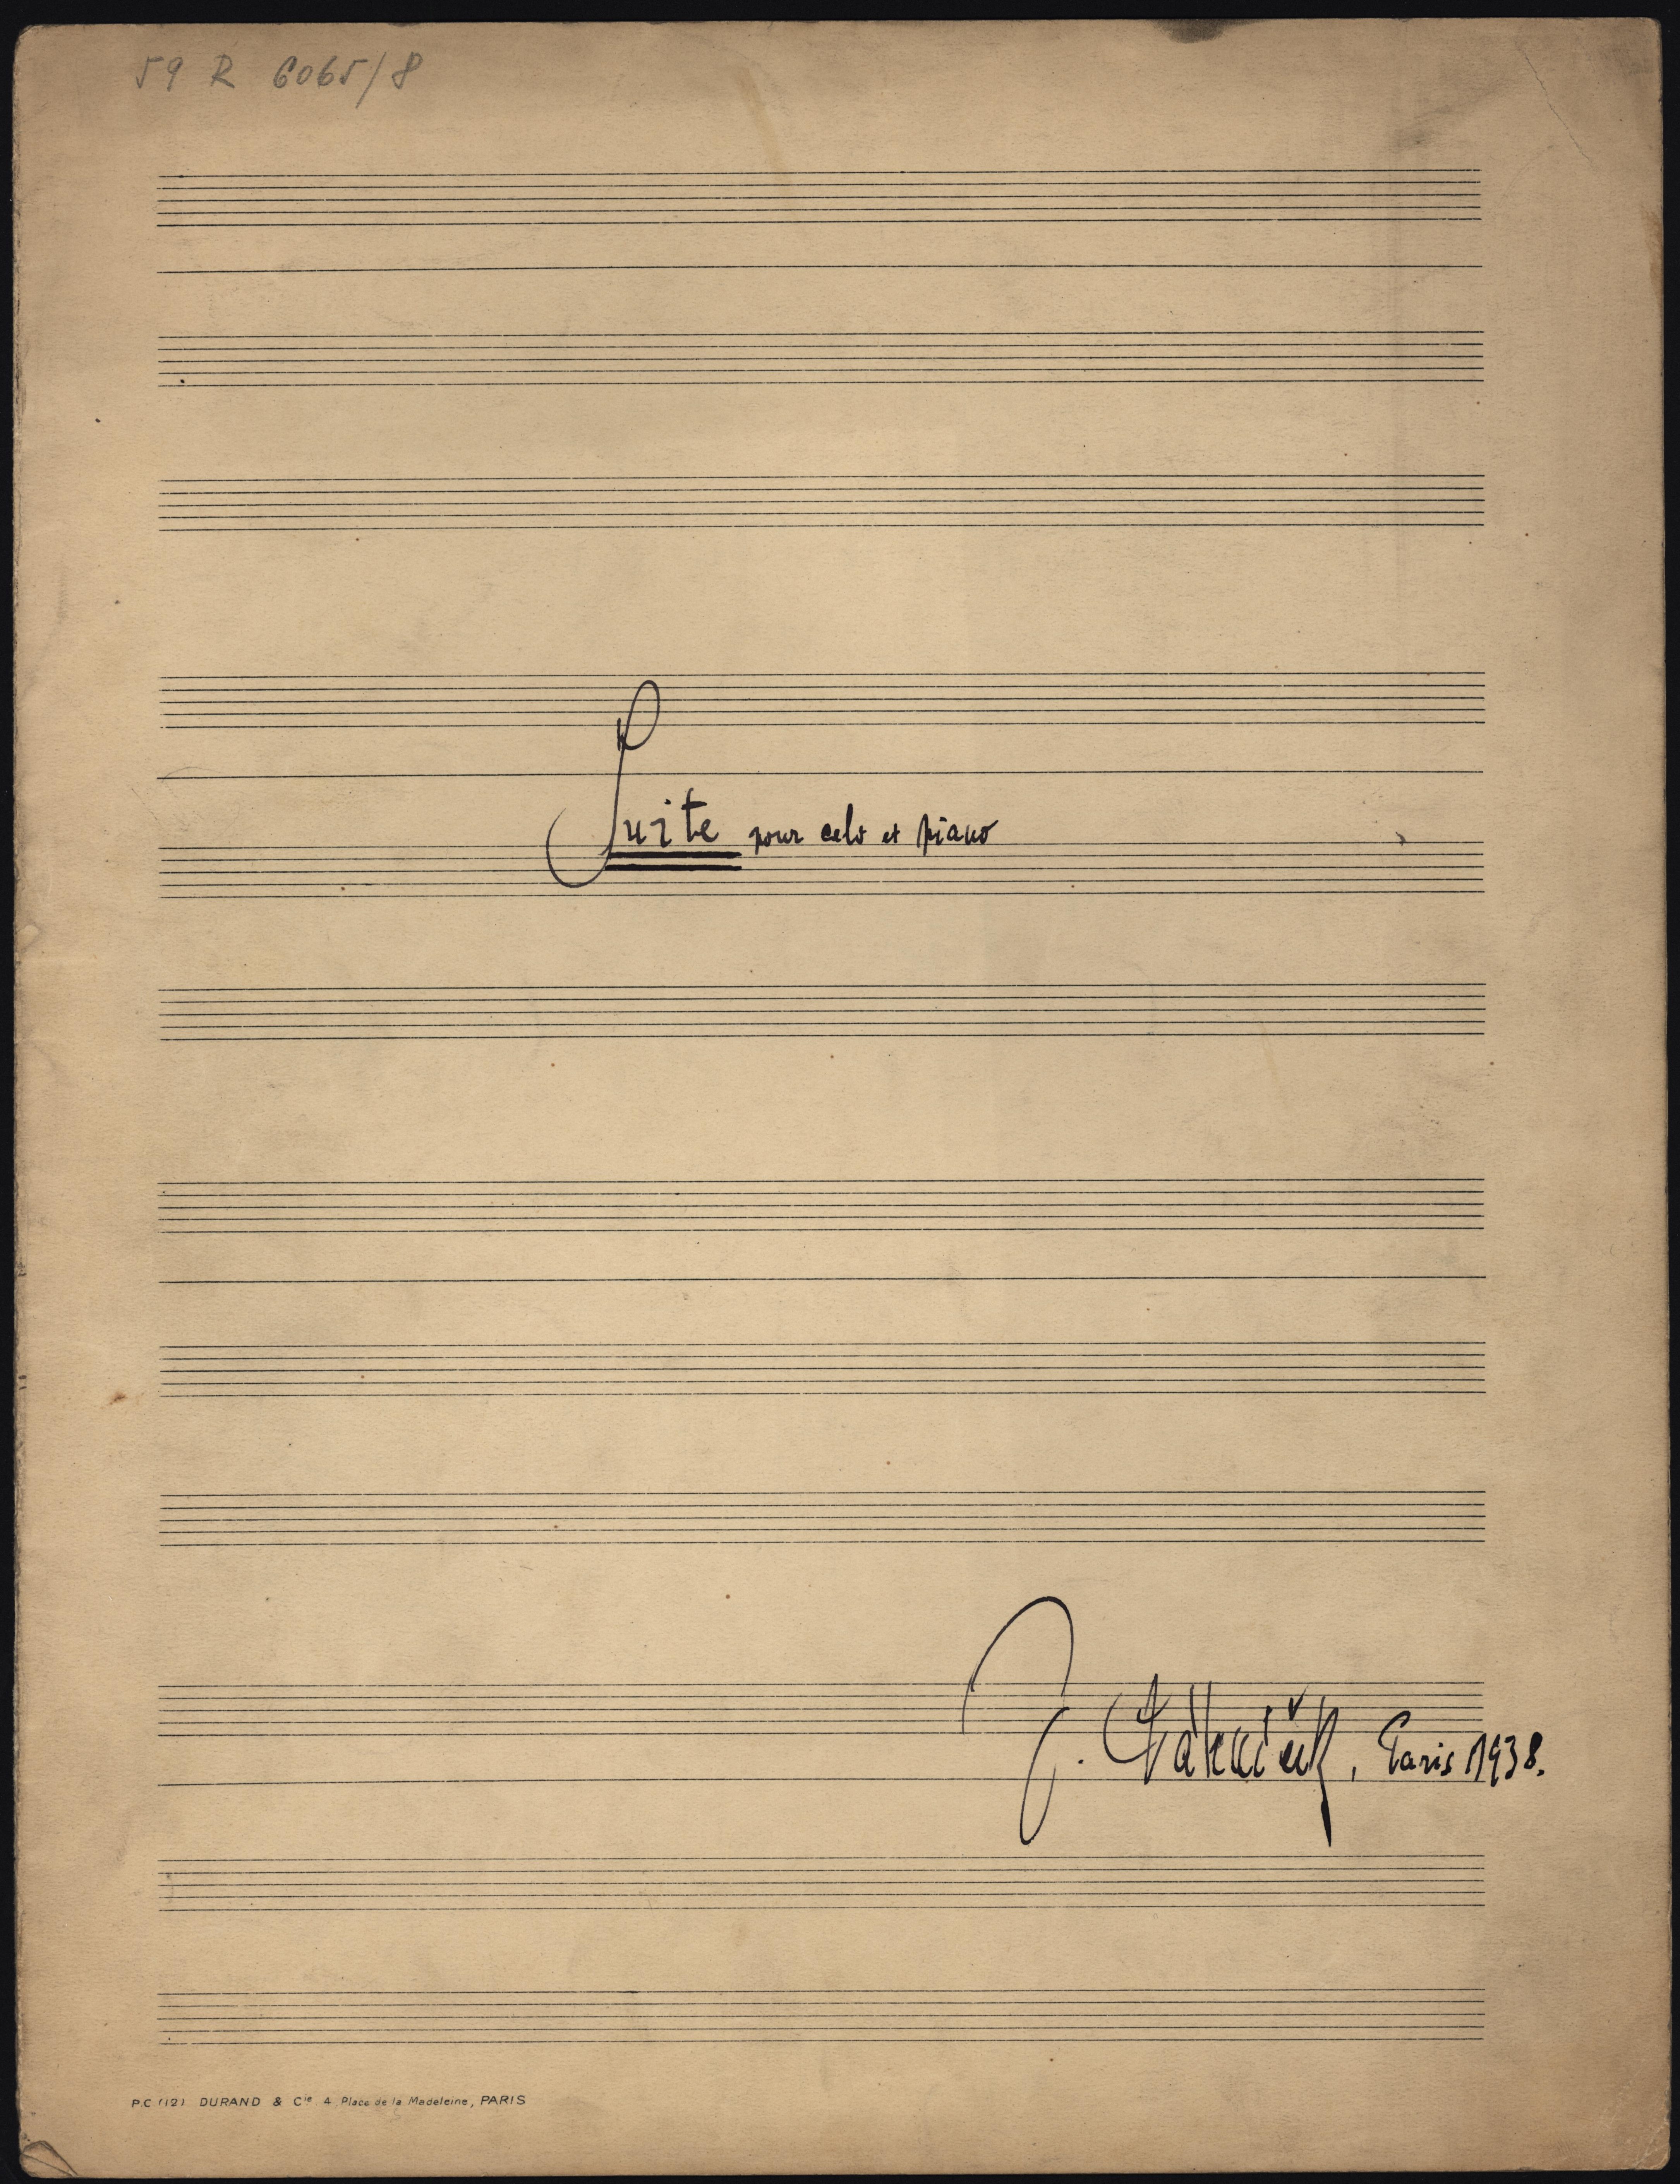 59 R 6065/8
Suite pour celo et piano
J. Páleníček, Paris 1938.
P.C (12) DURAND & Cie 4, Place de la Madeleine, PARIS